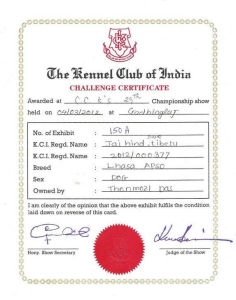 The Kennel Club of India
CHALLENGE CERTIFICATE
Awarded at C.C.K's 29th Championship show
held on 09/09/2012 at
No. of Exhibit : 150 A
K.C.I. Regd. Name : Jai hind tibetu
K.C.I. Regd. Name : 2012/000377
Breed : Lhasa Apso
Sex : DOG
Owned by : Thenmozi Das
I am clearly of the opinion that the above exhibit fulfils the condition
laid down on reverse of this card.
Hony. Show Secretary
Judge of the Show